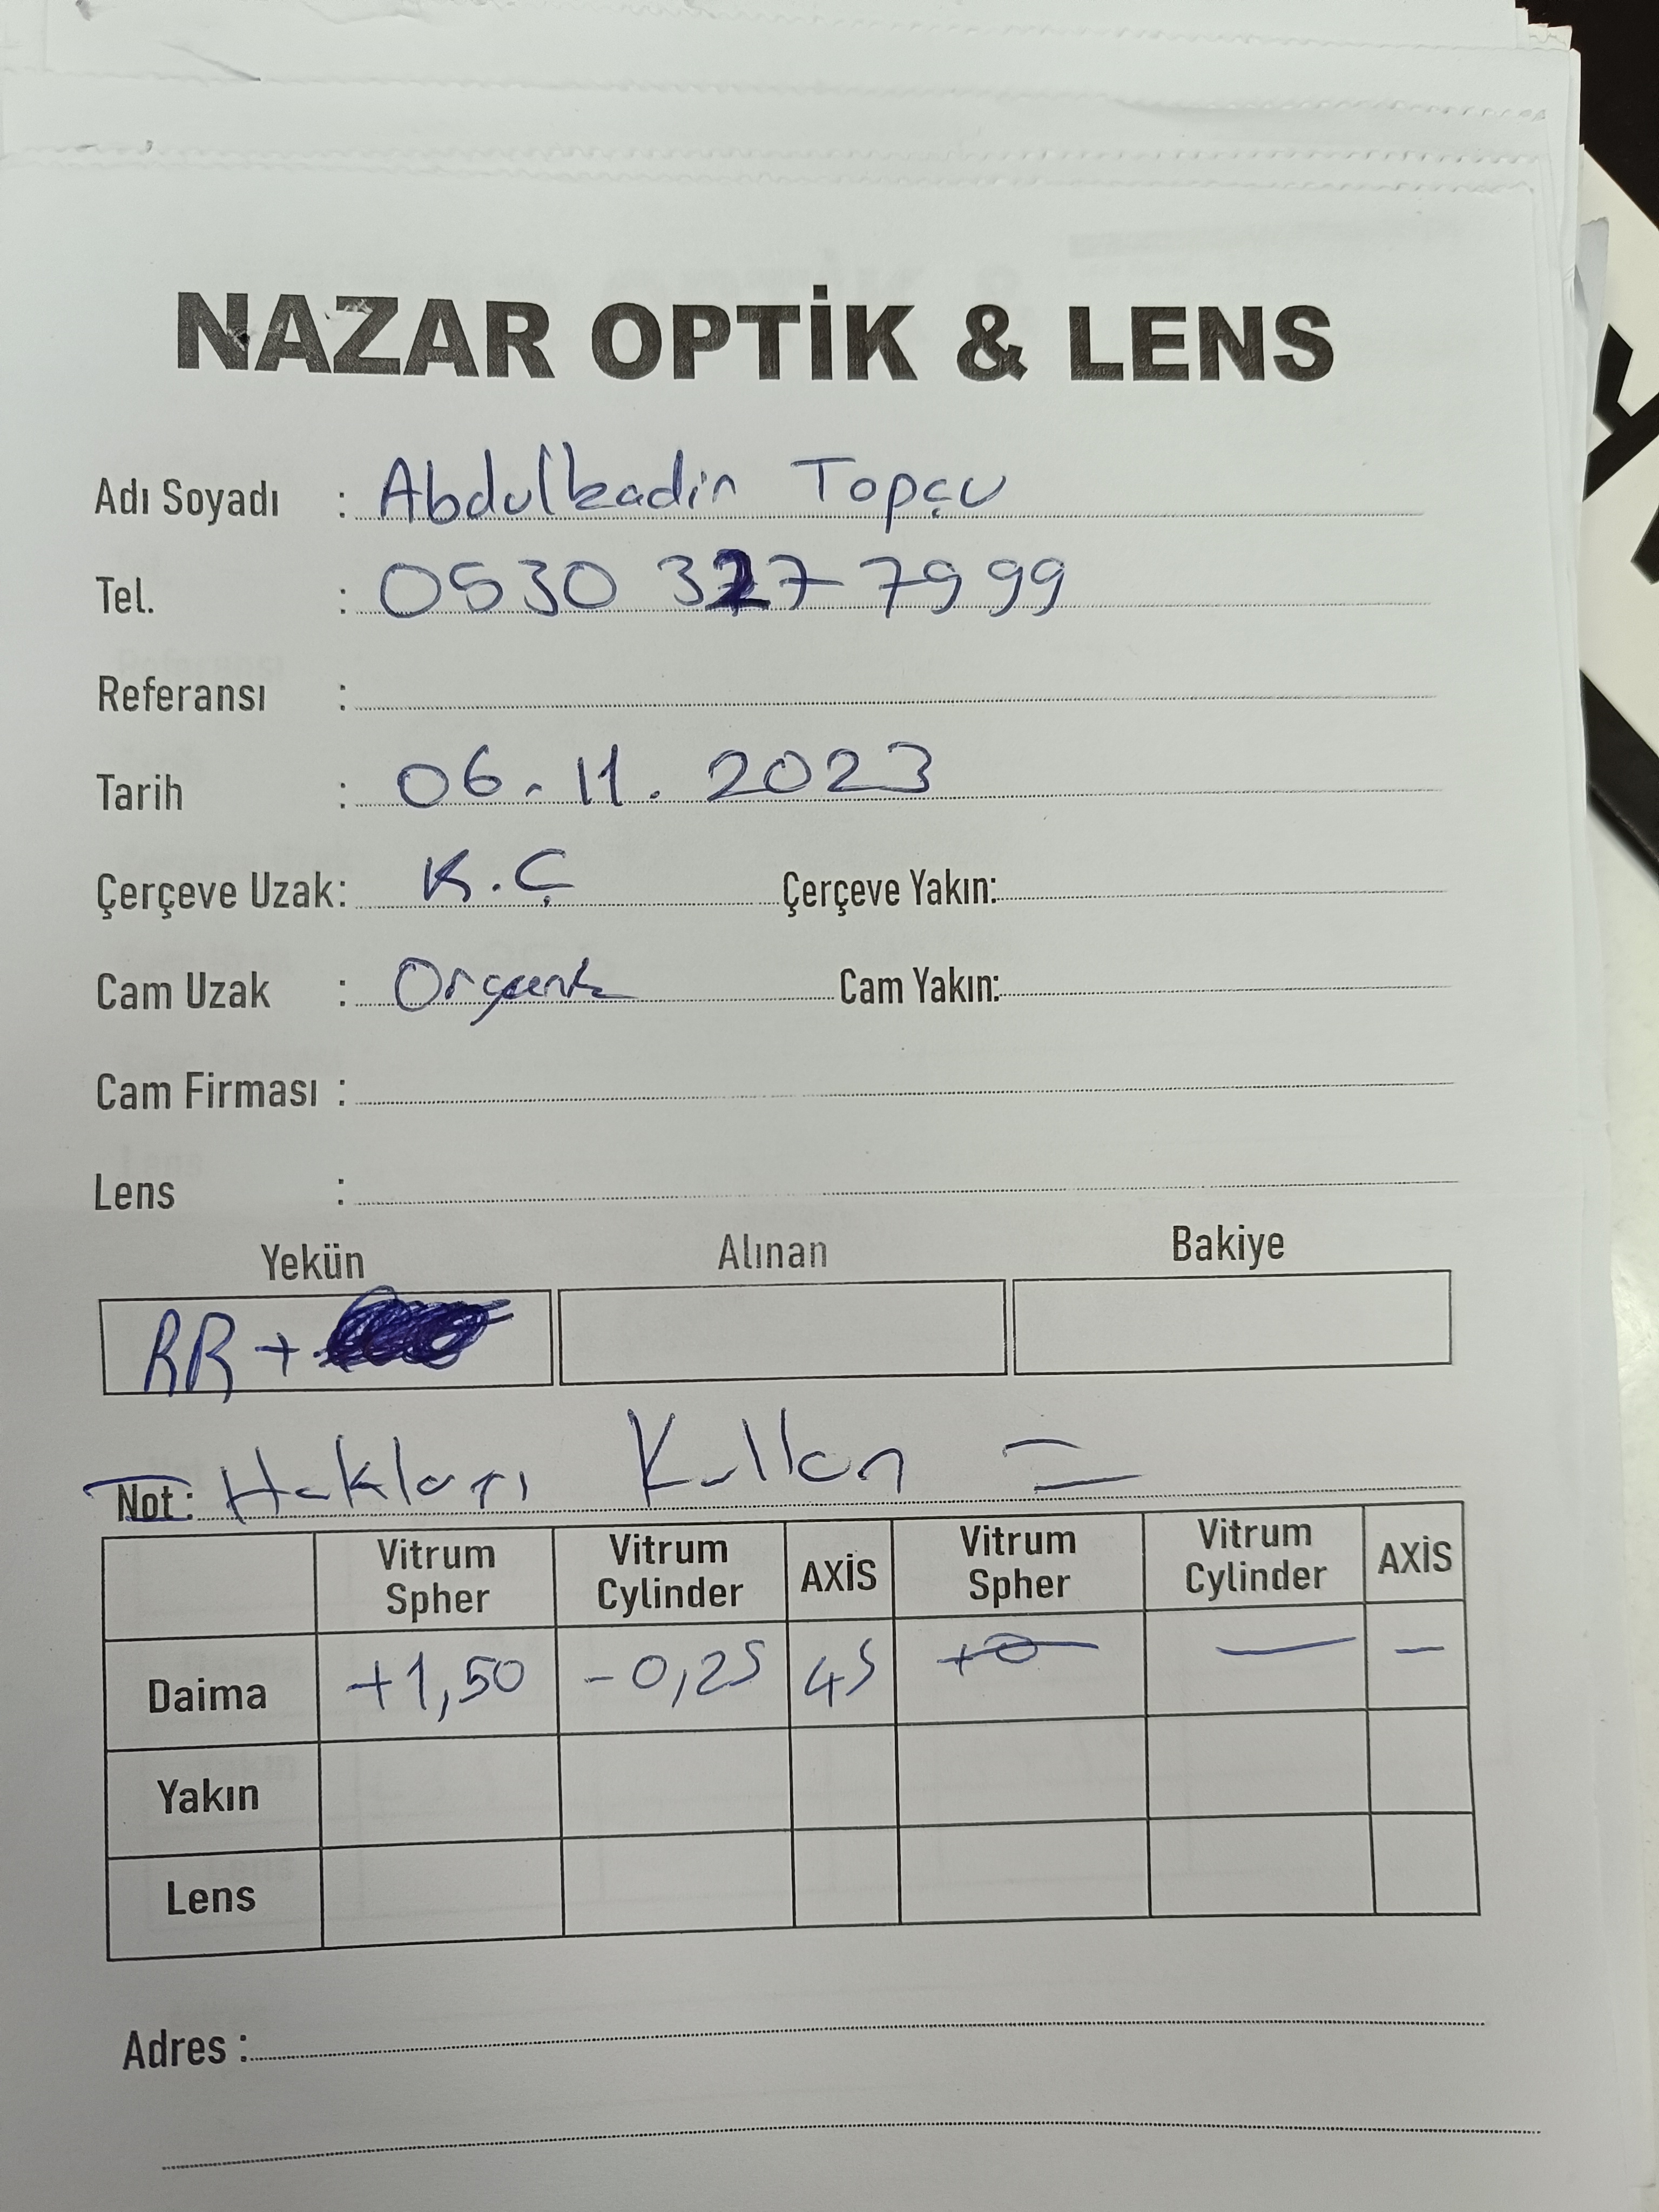 NAZAR OPTİK & LENS
Adı Soyadı : Abdulkadir Topçu
Tel. : 0530 327 7999
Referansı :
Tarih : 06.11.2023
Çerçeve Uzak: K.Ç Çerçeve Yakın:
Cam Uzak : Organik Cam Yakın:
Cam Firması :
Lens :
Yekün Alınan Bakiye
RR +
Not: Hakları Kullan
Vitrum Spher Vitrum Cylinder AXİS Vitrum Spher Vitrum Cylinder AXİS
Daima +1,50 -0,25 45 +0 — —
Yakın
Lens
Adres :